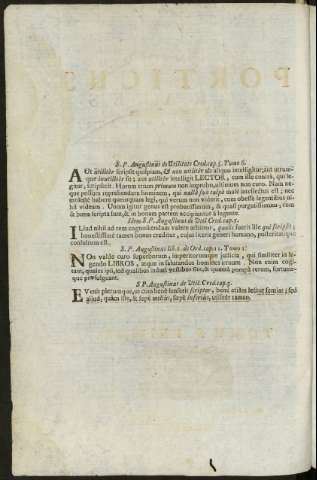 S. P. Augustinus de Utilitate Cred. cap. 5. Tomo 6.
AUt utiliter scripsit quispiam, & non utiliter ab aliquo intelligitur; aut utrum-
que inutiliter fit; aut utiliter intelligit LECTOR, cum ille contrà, qui le-
gitur, scripserit. Harum trium primum non improbo, ultimum non curo. Nam ne-
que possum reprehendere hominem, qui nullâ suâ culpâ malè intellectus est; nec
Unum igitur genus est probatissimum, & quasi purgatissimum, cum
& bona scripta sunt, & in bonam partem accipiuntur à legente.
Idem S. P. Augustinus de Util. Cred. cap. 5.
Illud nihil ad rem cognoscendam valere arbitror, qualis fuerit ille, qui scripsit;
honestissimè tamen bonus creditur, cujus litteris generi humano, posteritatique
consultum est.
S. P. Augustinus lib. 1. de Ord. cap. 11. Tomo 1.
NOn valdè curo superborum, imperitorumque judicia, qui similiter in le-
gendos LIBROS, atque in salutandos homines irruunt. Non enim cogi-
tant, quales ipsi, sed qualibus induti vestibus sint, & quantâ pompâ rerum, fortunæ-
que præfulgeant.
S. P. Augustinus de Util. Cred. cap. 5.
EVenit plerumque, ut cum benè senserit scriptor, benè etiam
aliud, quàm ille, & sæpè meliùs, sæpè inferiùs, utiliter tamen.
PORTICUS